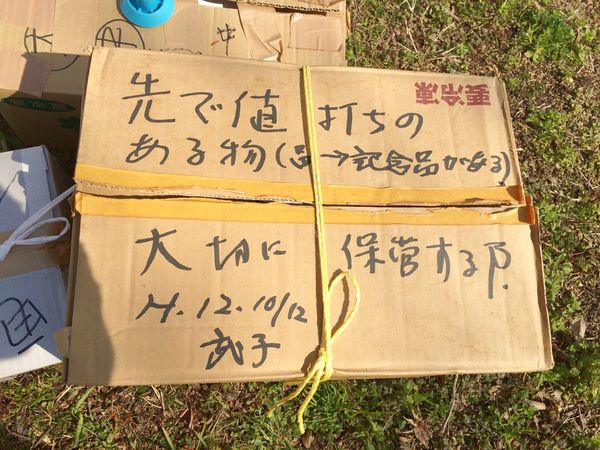 要冷凍
先で値打ちの
ある物(品→記念品がある)
大切に 保管する
H.12.10/12
武子